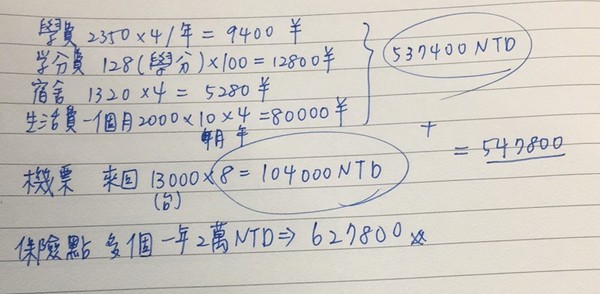 學費 2350×4/年 = 9400 ¥
学分費 128(學分)×100 = 12800¥
宿舍 1320 ×4 = 5280 ¥
生活費一個月2000×10×4=80000¥
月 年
537400 NTD
機票 來回 13000×8 = 104000 NTD
(台)
+
= 547800
保險點 多個 一年2萬NTD⇒ 627800